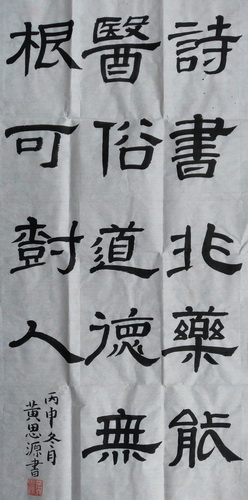 詩書非藥能
醫俗道德無
根可樹人
丙申冬月
黃思源書